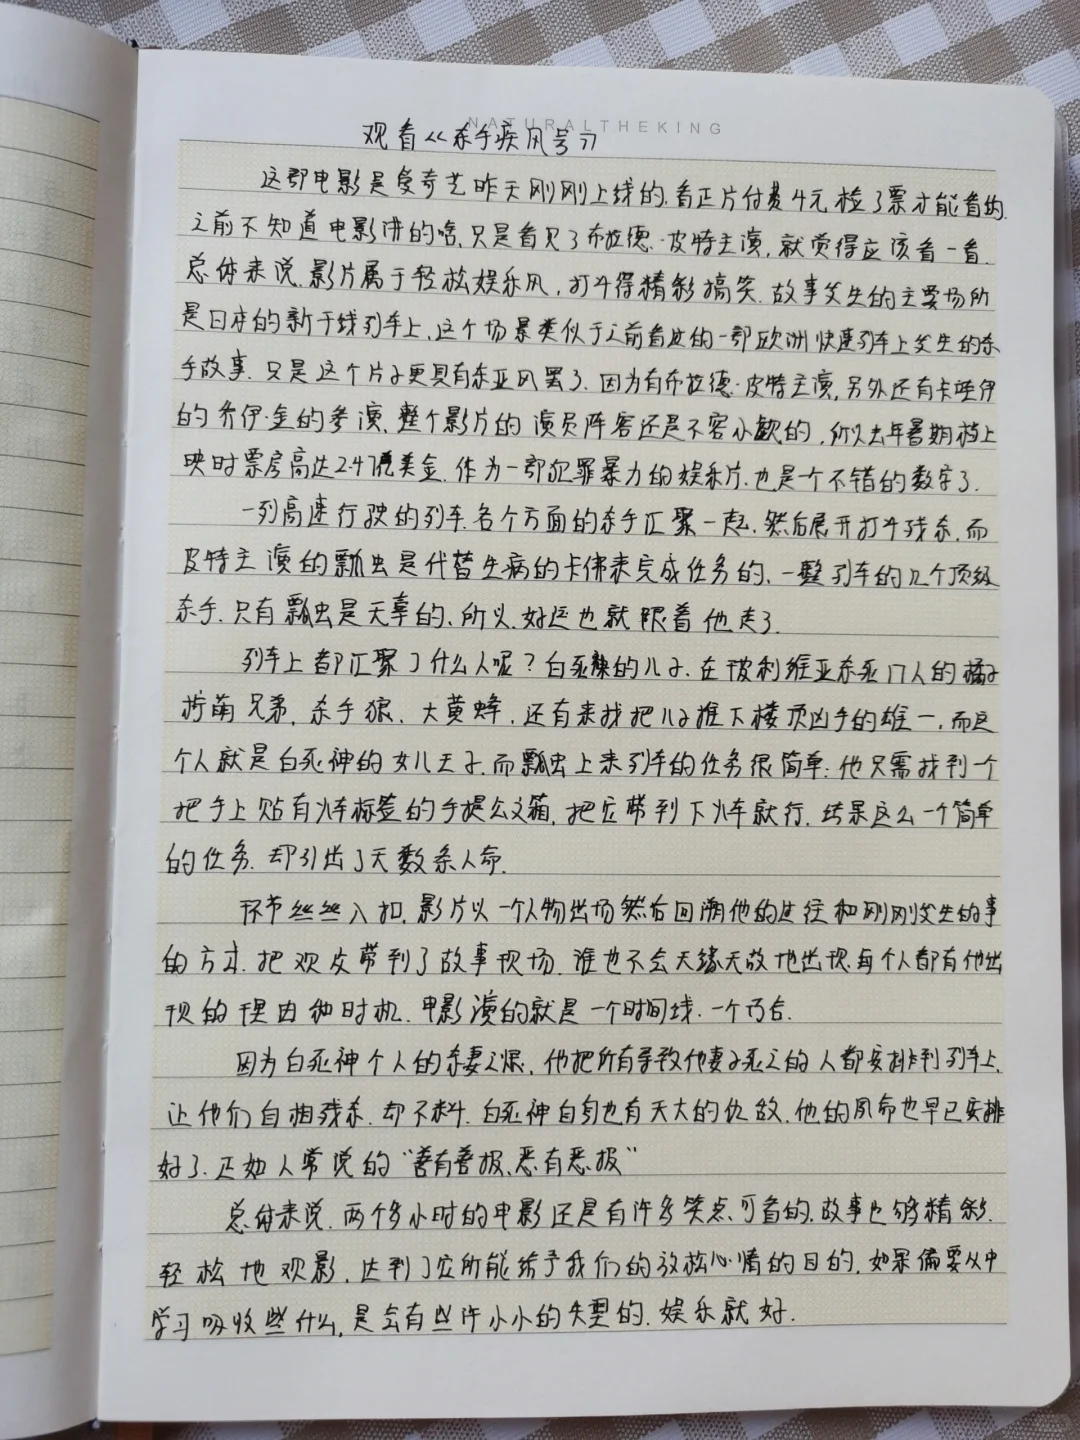 NATURALTHEKING
观看《杀手疾风号》
这部电影是爱奇艺昨天刚刚上线的,看正片付费4元,检了票才能看的.
之前不知道电影讲的啥,只是看见了布拉德·皮特主演,就觉得应该看一看.
总体来说,影片属于轻松娱乐风,打斗得精彩搞笑.故事发生的主要场所
是日本的新干线列车上,这个场景类似于之前看过的一部欧洲快速列车上发生的杀
手故事.只是这个片子更具有东亚风罢了.因为有布拉德·皮特主演,另外还有卡哇伊
的乔伊·金的参演,整个影片的演员阵容还是不容小歔的,所以去年暑期档上
映时票房高达2.47億美金.作为一部犯罪暴力的娱乐片,也是一个不错的数字了.
一列高速行驶的列车,各个方面的杀手汇聚一起,然后展开打斗残杀,而
皮特主演的瓢虫是代替生病的卡佛来完成任务的,一整列车的几个顶级
杀手,只有瓢虫是无辜的,所以,好运也就跟着他走了.
列车上都汇聚了什么人呢?白死神的儿子,在玻利维亚杀死17人的橘子
柠南兄弟,杀手狼,大黄蜂,还有来找把儿子推下楼顶凶手的雄一,而这
个人就是白死神的女儿王子.而瓢虫上来列车的任务很简单:他只需找到一个
把手上贴有火车标签的手提公文箱,把它带到下火车就行.结果这么一个简单
的任务,却引出了无数条人命.
环节丝丝入扣,影片以一个人物出场然后回溯他的过往和刚刚发生的事
的方式,把观众带到了故事现场.谁也不会无缘无故地出现,每个人都有他出
现的理由和时机.电影演的就是一个时间线,一个巧合.
因为白死神个人的杀妻之恨,他把所有导致他妻子死亡的人都安排到列车上,
让他们自相残杀.却不料,白死神自身也有天大的仇敌,他的夙命也早已安排
好了.正如人常说的“善有善报,恶有恶报”
总体来说,两个多小时的电影还是有许多笑点可看的,故事也够精彩.
轻松地观影,达到了它所能给予我们的放松心情的目的,如果偏要从中
学习吸收些什么,是会有些许小小的失望的.娱乐就好.